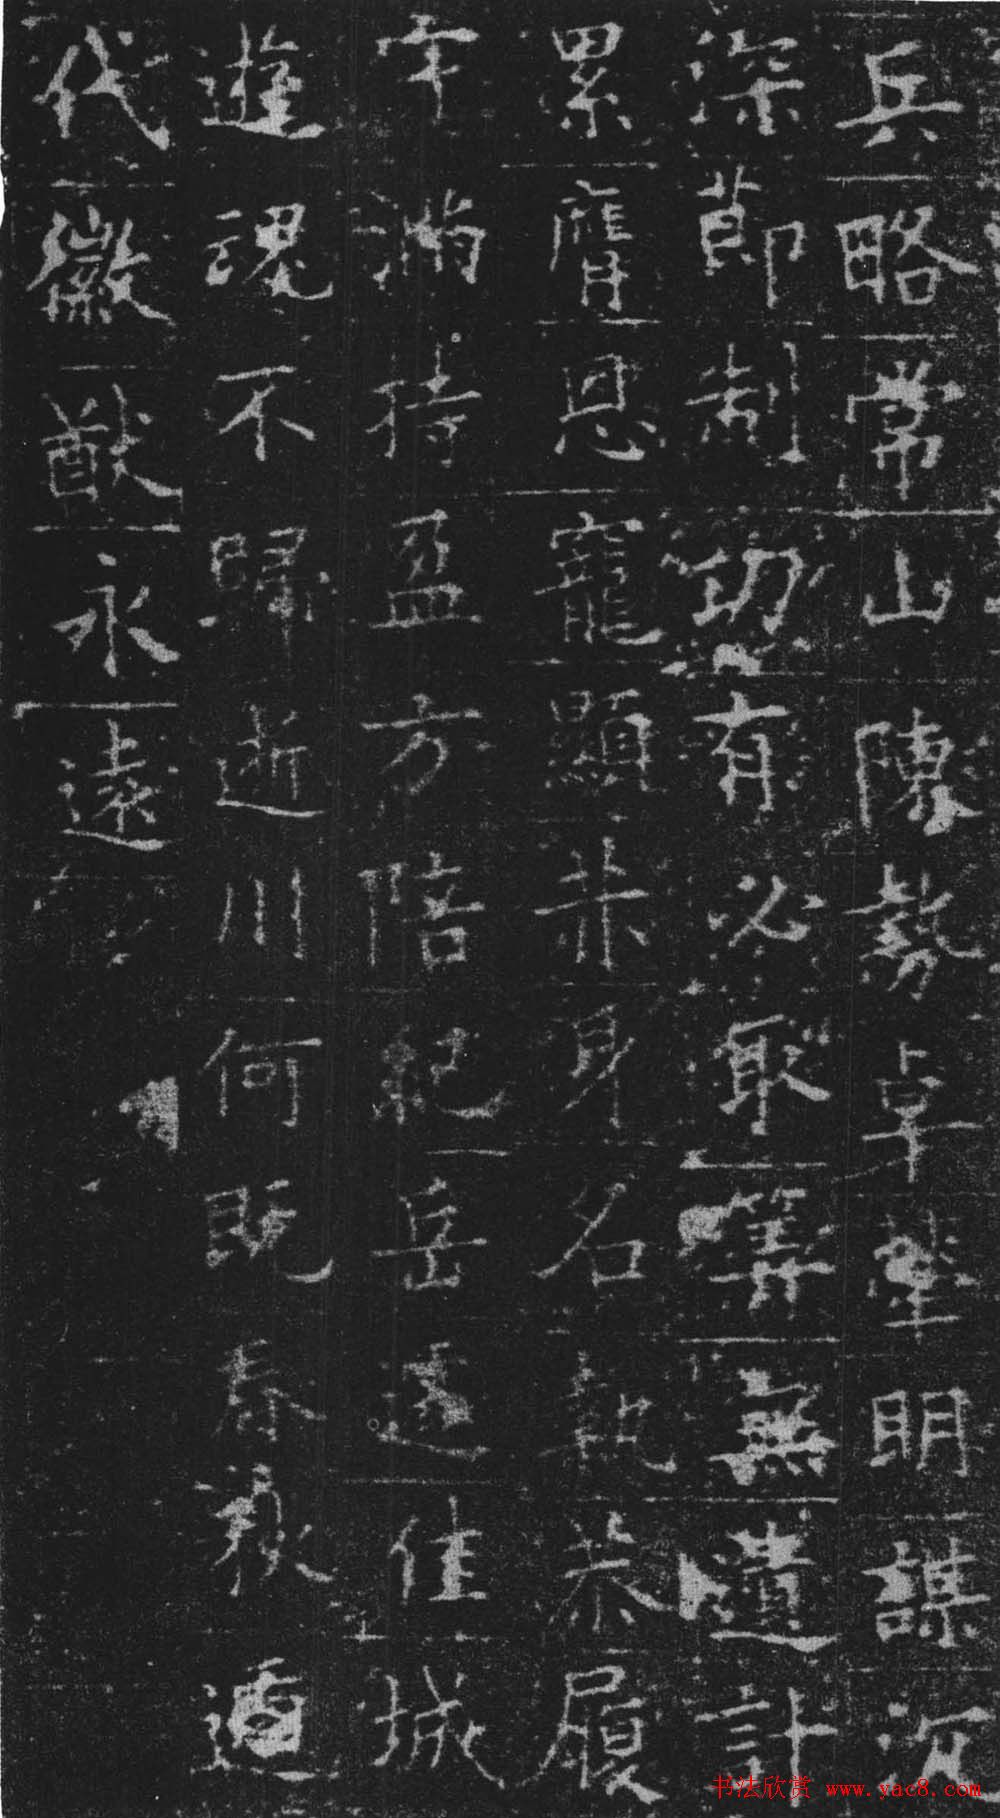 兵略常山陳勢卓犖明謀沉
深節制功有必取筭無遺計
累膺恩寵顯身名執恭履
守滿持盈方陪紀岳佳城
遊魂不歸逝川何既春秋遞
代徽猷永遠
书法欣赏 www.yac8.com